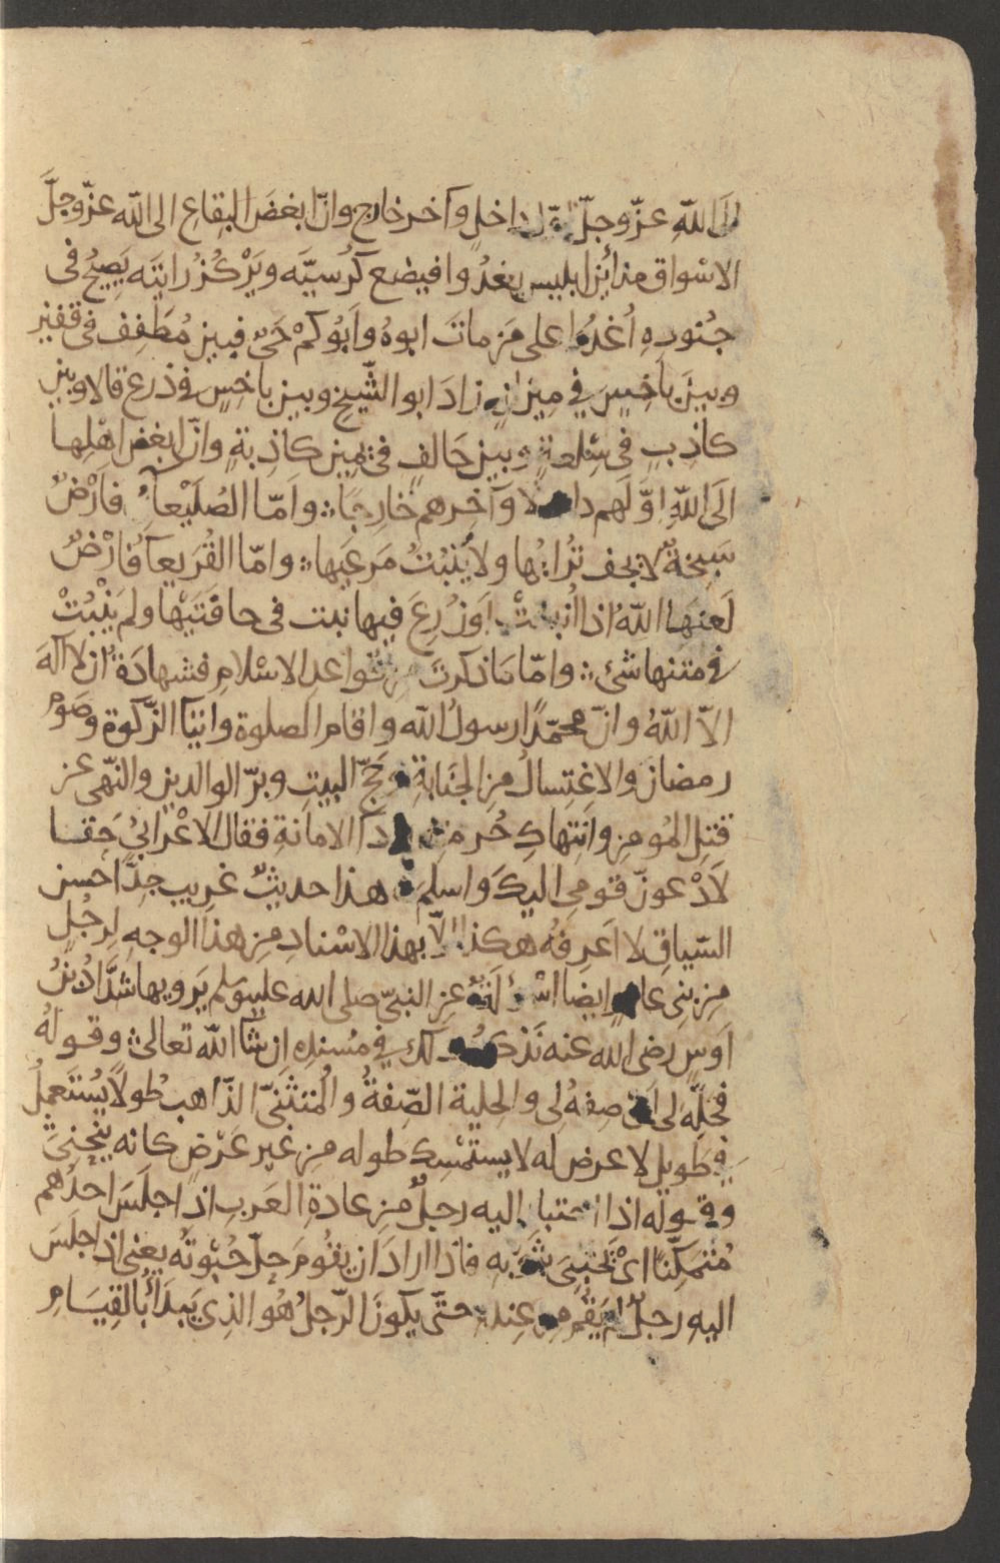 الى الله عزّ وجلّ اوّل داخلٍ وآخر خارج وانّ ابغضَ البِقاعِ الى الله عزّ وجلَّ
الاسْواق منذ أيْن ابليس يغدُوا فيضع كُرْسيَّه ويَرْكُزُ رايتَه يَصِيحُ فى
جُنودِهِ اُغدُوا على مَن ماتَ ابوهُ وابُوكمْ حَىّ فبين مُطَفِفٍ فى قفيزٍ
وبينَ باخِسٍ فِي مِيزانٍ زادَ ابو الشّيخ وبين باخِسٍ فى ذرع قالا وبين
كاذِبٍ فى سِلعةٍ وبين حَالفٍ فى يمين كاذِبةٍ وانّ ابغضَ اهْلِها
الَى اللهِ اوّلَهم داخلا وآخِرهم خارِجًا؞ وَامّا الصُلَيْعآءُ فارْضٌ
سَبِخةٌ لا يجف تُرابُها ولا يَنْبُتُ مَرعَيها؞ وامّا القُرَيعآءُ فارْضٌ
لَعنَها اللهُ اذا انبتتْ اَوزُرِعَ فيها نبت فى حافَتَيْها ولم يَنْبُتْ
فى متنها شئ؞ وامّا ما ذكرتَ من قواعد الاسْلامِ فشهادَة ان لا آلهَ
الاّ اللهُ وانّ محمّدًا رسولُ الله واقام الصلوة وايتآ الزّكوة وصَوْم
رمضان والاغتِسالُ مِن الجَنابةِ وحَجّ البيتِ وبرّ الوالدين والنّهى عن
قتلِ المُومِن وانتِهاكِ حُرمته وادآ الامانةِ فقال الاعْرابىُ حَقا
لاَدْعونّ قومِى اليكَ واسلِم هذا حديثٌ غريب جِدًّا حسن
السّياقِ لا اَعرِفهُ هكذا الاّ بهذا الاسْنادِ مِن هذا الوجهِ لرجُلٍ
مِن بنِى عامر ايضا اسْئلَة عن النبىّ صلى الله عليه وسلم يَرويها شدَّادُ بنُ
اَوسٍ رضى الله عنه نَذكر ذلك فِي مُسندِه اِن شآ الله تعالى؞ وقولهُ
فحَلِّه لى اى صِفهُ لِى والحِلية الصّفةُ والمُتثَنّى الذّاهبُ طولاً يُستَعملُ
فى طَويل لا عرض له لا يستَمْسِك طوله مِن غير عَرْضٍ كانه ينحنِى
وقوله اذا احتبا اليه رجلٌ من عادةِ العَربِ اذا جلَسَ احدُهم
مُتمَكّنًا اىْ يَحْتبِى بثوبه فاذا ارادَ ان يقُومَ حلّ حُبْوتُه يعنى اذا جلَسَ
اليهِ رجلٌ لم يَقُم مِن عِندِه حتّى يكونَ الرّجلُ هُو الذِى يَبدَأُ بالقِيَامِ